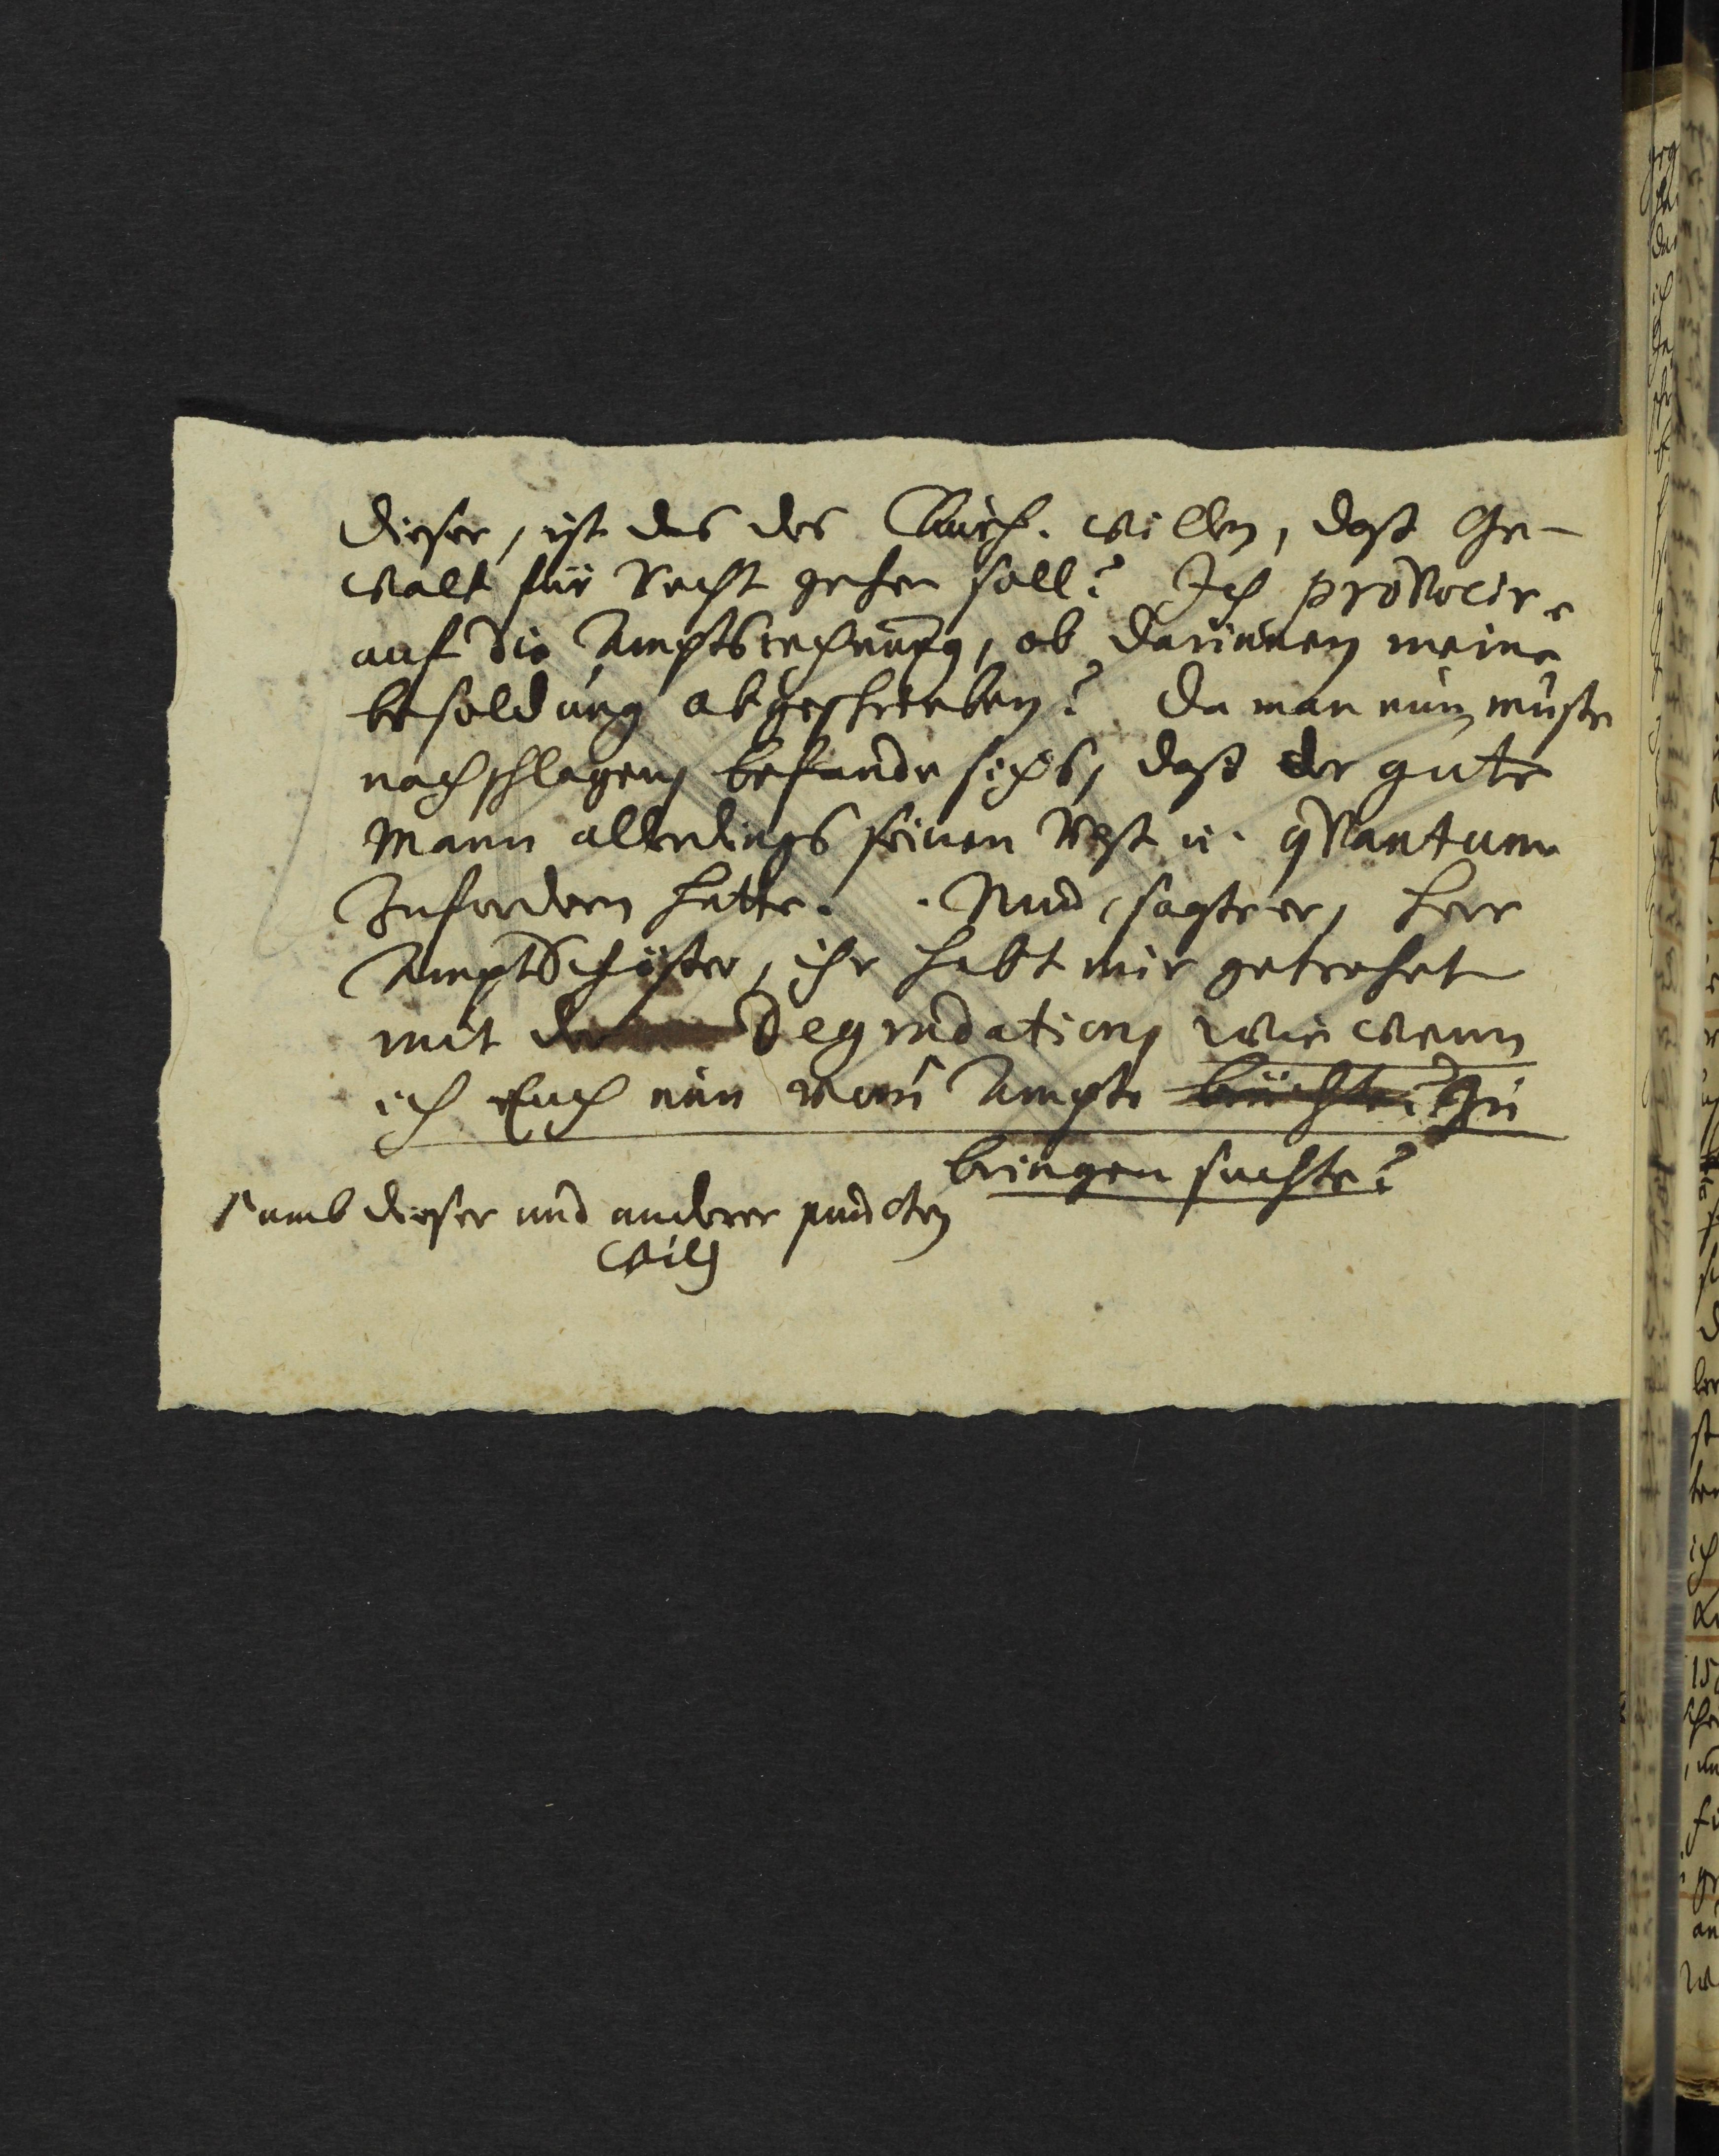 dieser, ist das des Churf. willen, daß Ge-
walt für Recht gehen soll? Ich provocire
auf die Amptsrechnung, ob darinnen meine
besoldung abgeschrieben? Da man nun muste
nachschlagen, befande sichs, daß der gute
Mann allerdings seinen Rest u. qvantum
zufordern hatte. Nund, sagte er, Herr
AmptSchößer, ihr habt mir getrohet
mit der Degradation, wie wenn
ich Euch nun vom Ampte brüchte? zu
bringen suchte?
umb dieser und anderer puncten
willn